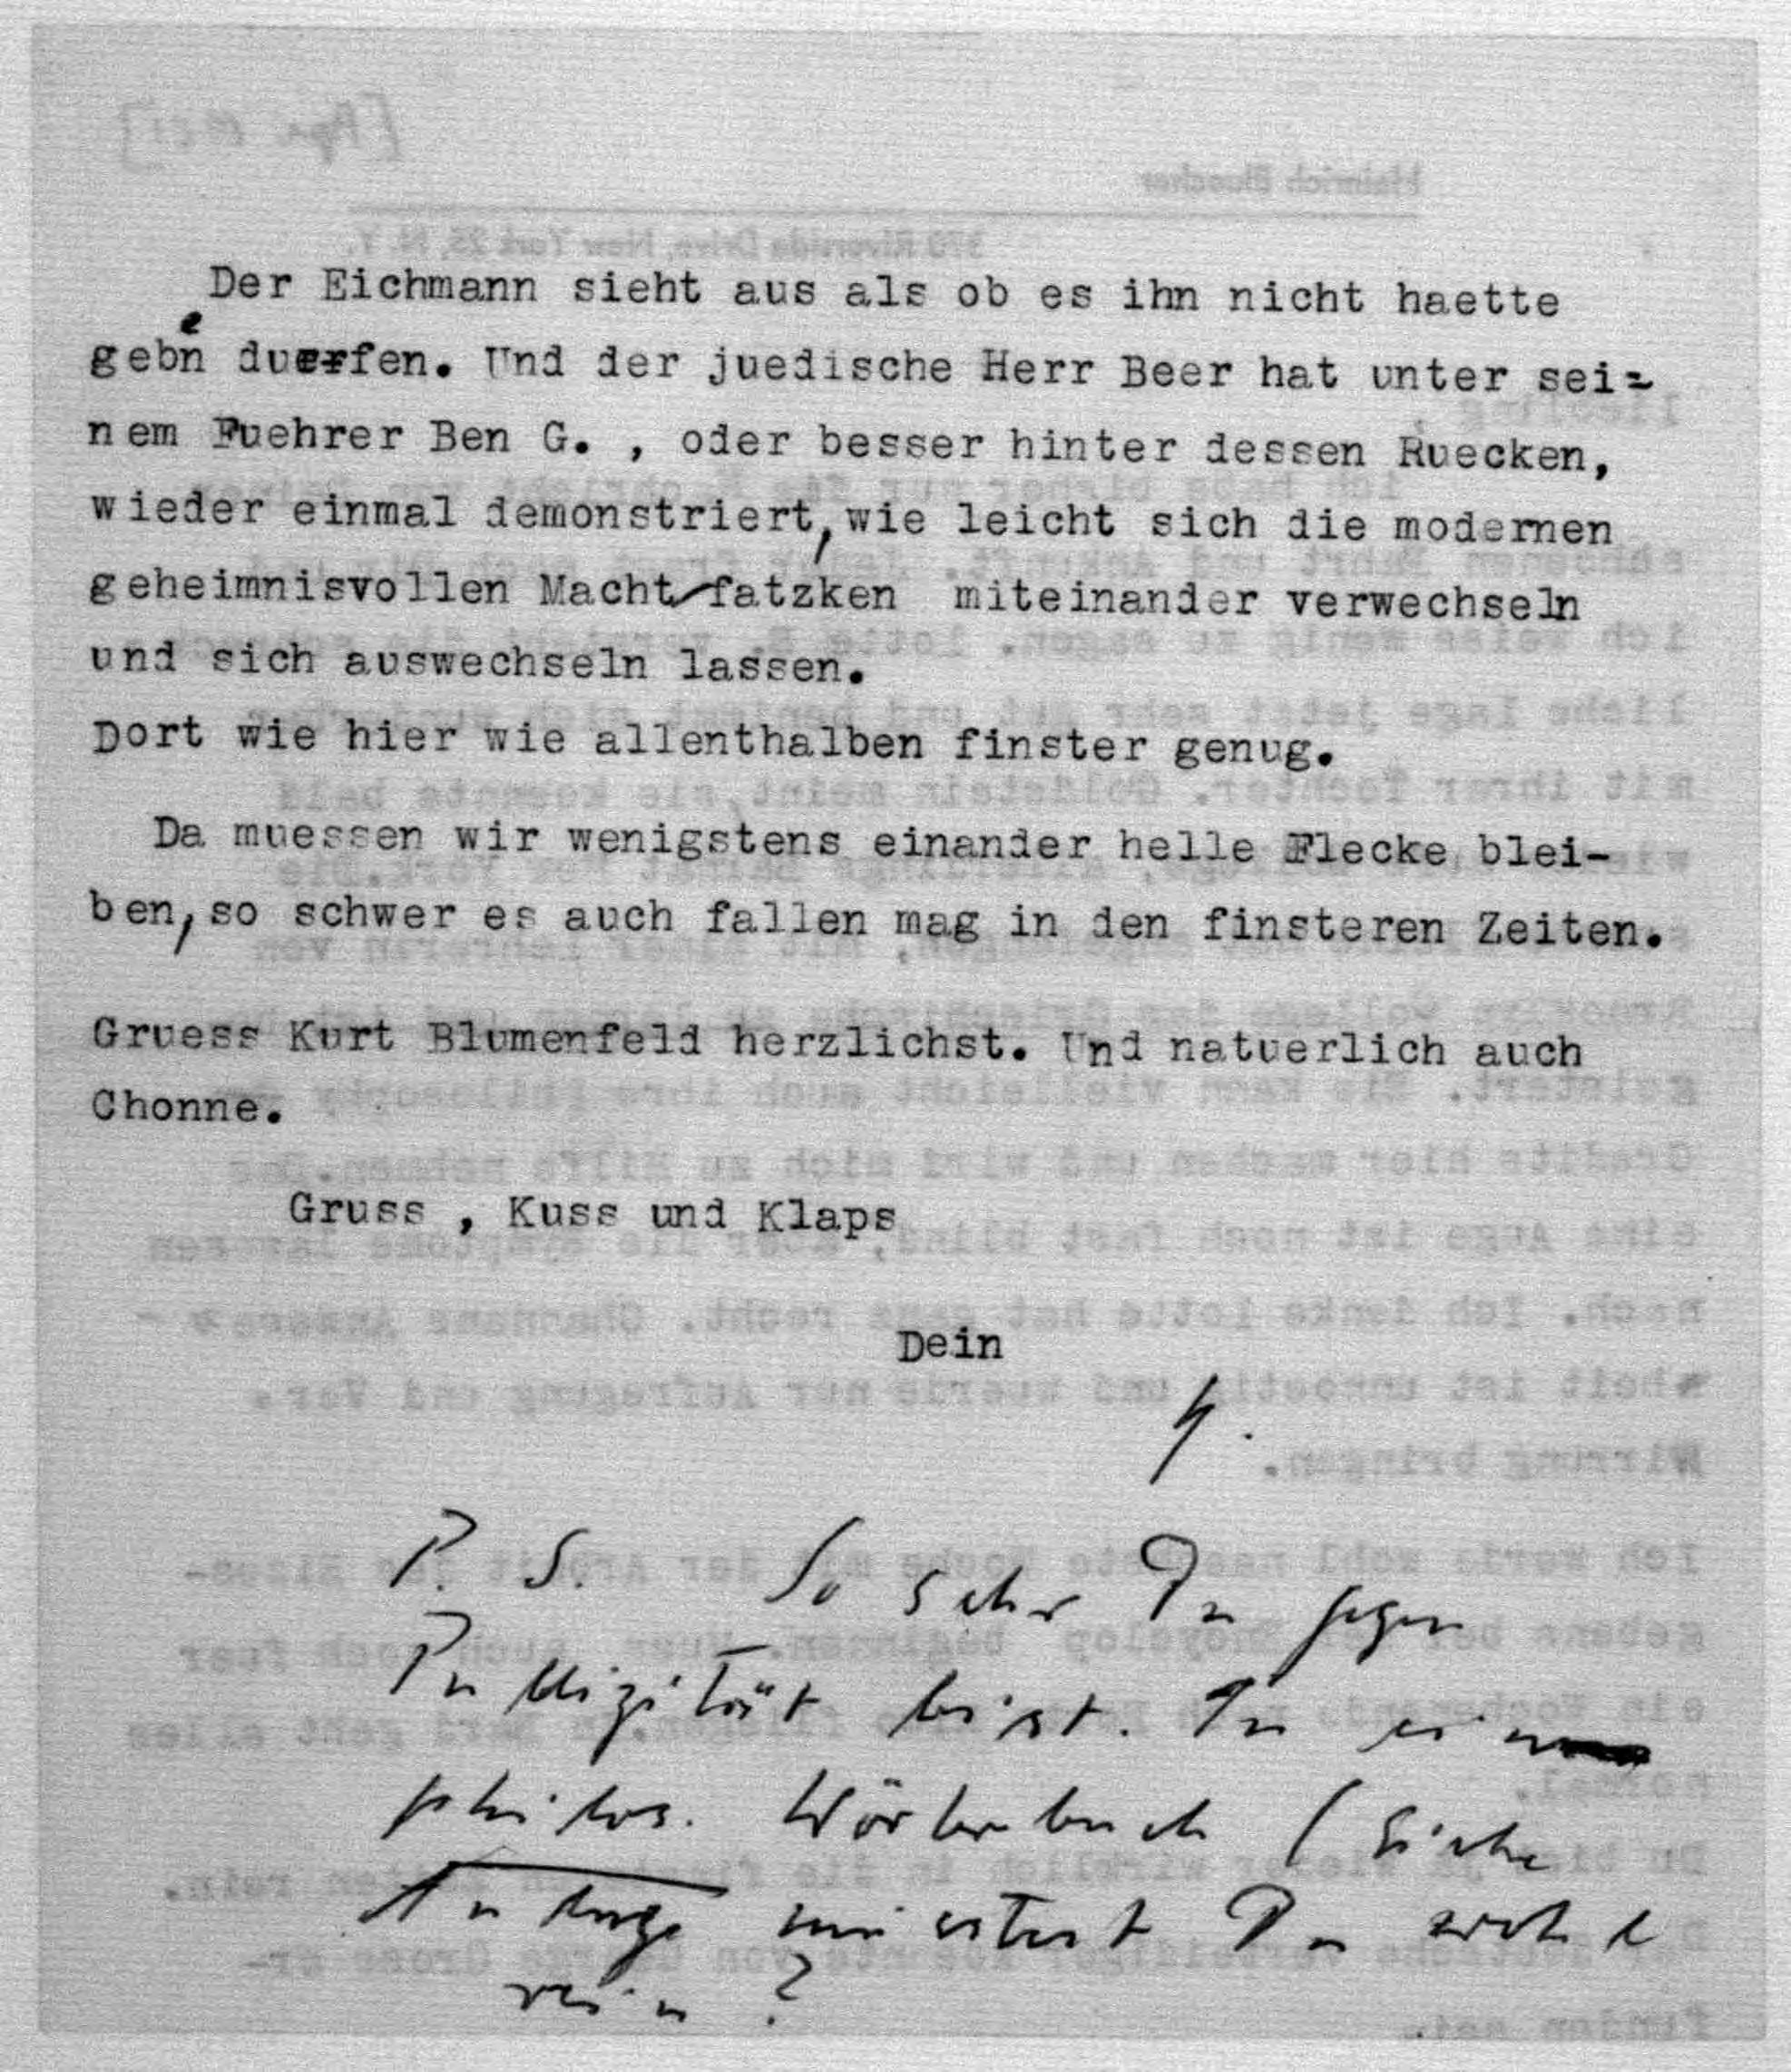 Der Eichmann sieht aus als ob es ihn nicht haette
geben duerfen. Und der juedische Herr Beer hat unter sei=
nem Fuehrer Ben G. , oder besser hinter dessen Ruecken,
wieder einmal demonstriert, wie leicht sich die modernen
geheimnisvollen Machtfatzken miteinander verwechseln
und sich auswechseln lassen.
Dort wie hier wie allenthalben finster genug.
Da muessen wir wenigstens einander helle Flecke blei-
ben, so schwer es auch fallen mag in den finsteren Zeiten.
Gruess Kurt Blumenfeld herzlichst. Und natuerlich auch
Chonne.
Gruss , Kuss und Klaps
Dein
H.
P. S. So sehr Du gegen
Publizität bist. In ein
philos. Wörterbuch (siehe
Anlage müsstest Du wohl
rein?